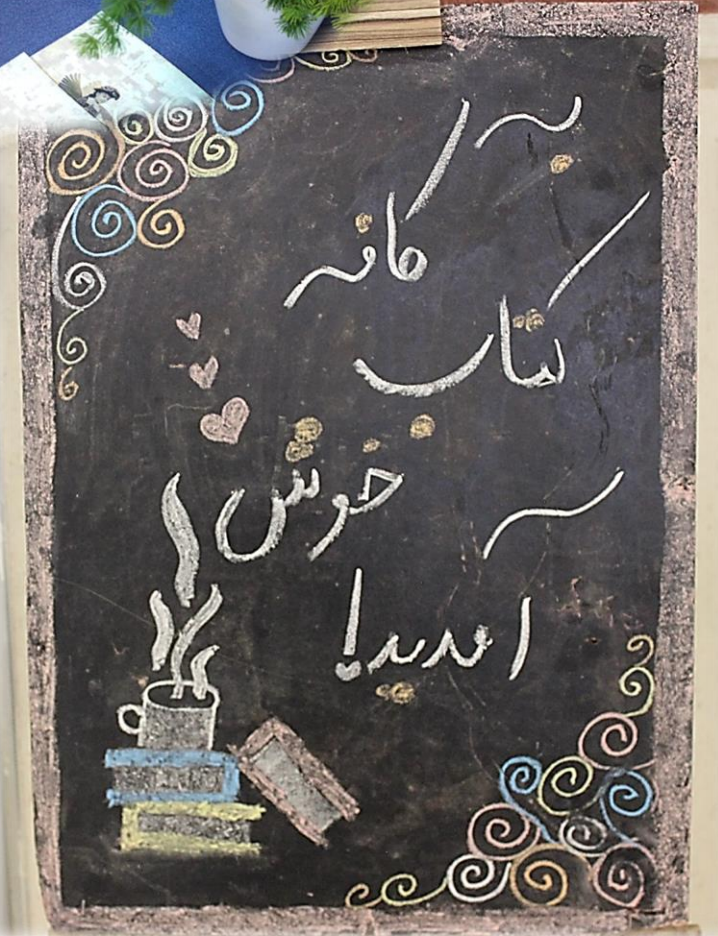 به
کافه
کتاب
خوش
آمدید!